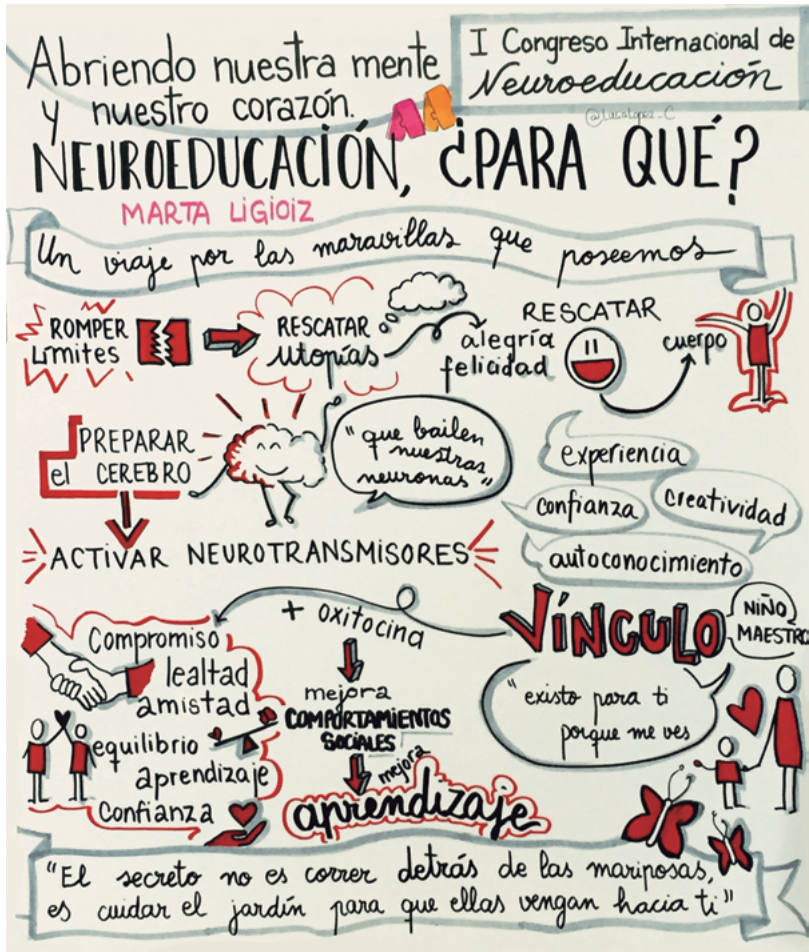 Abriendo nuestra mente
y nuestro corazón.
I Congreso Internacional de
Neuroeducación
@LuciaLopez_C
NEUROEDUCACIÓN, ¿PARA QUÉ?
MARTA LIGIOIZ
Un viaje por las maravillas que poseemos
ROMPER
Límites
RESCATAR
utopías
alegría
felicidad
RESCATAR
cuerpo
PREPARAR
el CEREBRO
"que bailen
nuestras
neuronas"
experiencia
confianza
creatividad
autoconocimiento
ACTIVAR NEUROTRANSMISORES
+ oxitocina
VÍNCULO
NIÑO
MAESTRO
Compromiso
lealtad
amistad
equilibrio
aprendizaje
Confianza
mejora
COMPORTAMIENTOS
SOCIALES
mejora
aprendizaje
"existo para ti
porque me ves
"El secreto no es correr detrás de las mariposas,
es cuidar el jardín para que ellas vengan hacia ti"